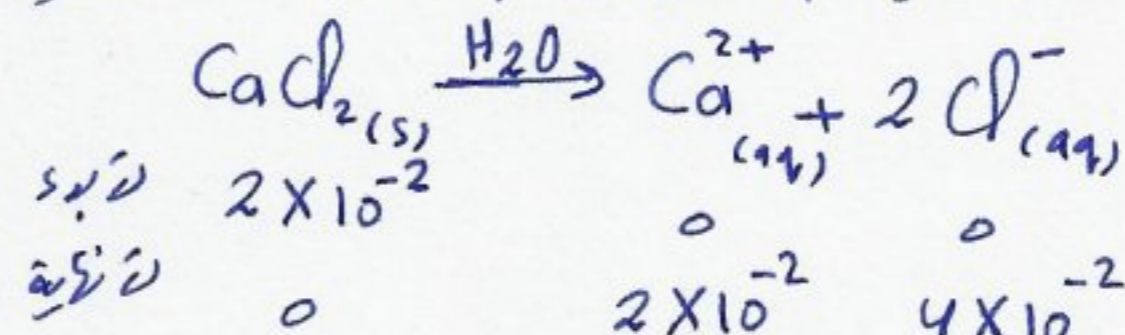 CaCl₂(s) —H₂O→ Ca²⁺(aq) + 2Cl⁻(aq)
ن بدء 2×10⁻² 0 0
ن نهاية 0 2×10⁻² 4×10⁻²